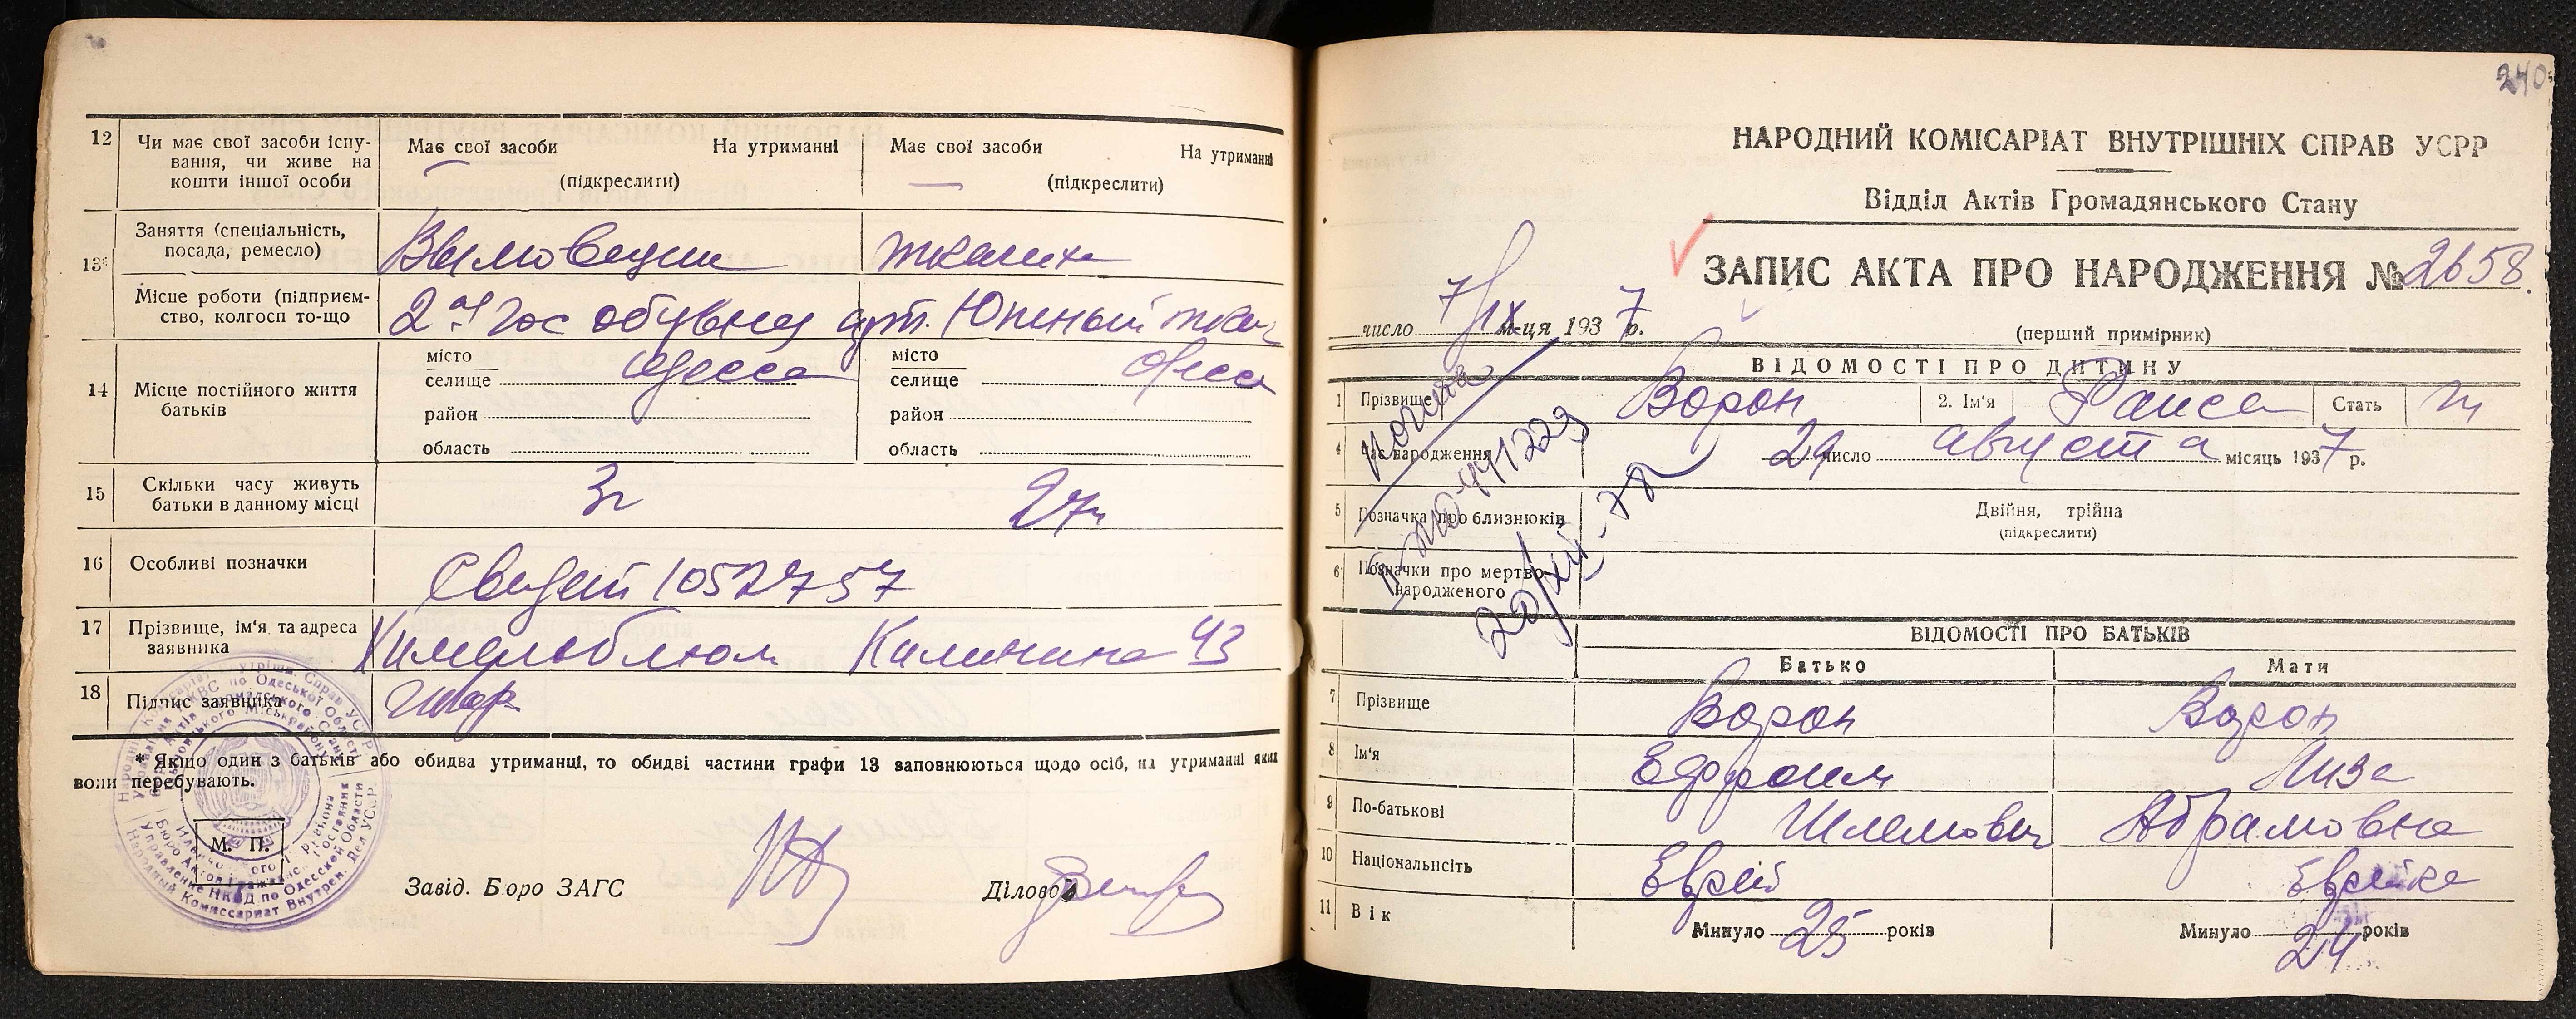 12 Чи має свої засоби існу-
вання, чи живе на
кошти іншої особи
Має свої засоби На утриманні
(підкреслити)
Має свої засоби На утриманні
(підкреслити)
13* Заняття (спеціальність,
посада, ремесло)
ткачиха
Місце роботи (підприєм-
ство, колгосп то-що
2ая Гос обувная Южный ткач
14 Місце постійного життя
батьків
місто
селище Одесса
район
область
місто
селище Одесса
район
область
15 Скільки часу живуть
батьки в данному місці
3г
16 Особливі позначки
Свидет 1052757
17 Прізвище, ім'я та адреса
заявника
Калинина 43
18 Підпис заявника
* Якщо один з батьків або обидва утриманці, то обидві частини графи 13 заповнюються щодо осіб, на утриманні яких
вони перебувають.
М. П.
Завід. Бюро ЗАГС Діловод
240
НАРОДНИЙ КОМІСАРІАТ ВНУТРІШНІХ СПРАВ УСРР
Відділ Актів Громадянського Стану
ЗАПИС АКТА ПРО НАРОДЖЕННЯ № 2658
число 7/IX м-ця 1937 р.
(перший примірник)
ВІДОМОСТІ ПРО ДИТИНУ
1 Прізвище Ворон 2. Ім'я Раиса Стать ж
4 Час народження 29 число августа місяць 1937 р.
5 Позначка про близнюків
Двійня, трійна
(підкреслити)
6 Позначки про мертво-
народженого
ВІДОМОСТІ ПРО БАТЬКІВ
Батько Мати
7 Прізвище Ворон Ворон
8 Ім'я Ефроим Лиза
9 По-батькові Шлемович Абрамовна
10 Національність Еврей Еврейка
11 Вік Минуло 25 років Минуло 24 років